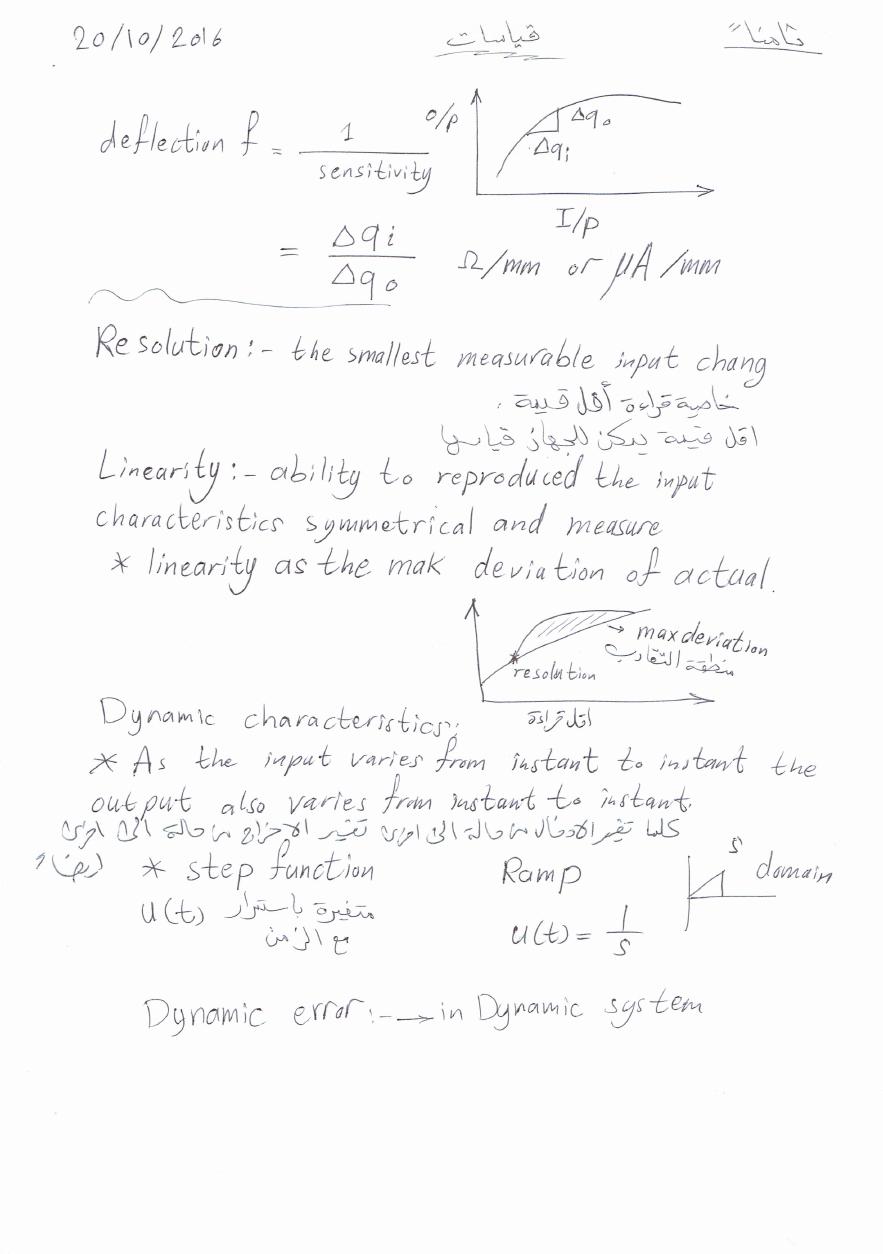 20/10/2016 قياسات ثامناً
deflection f = 1 / sensitivity
o/p
Δqo
Δqi
I/p
= Δqi / Δqo Ω/mm or μA/mm
Resolution:- the smallest measurable input chang
خاصية قراءة أقل قيمة .
اقل قيمة يمكن للجهاز قياسها
Linearity:- ability to reproduced the input
characteristics symmetrical and measure
* linearity as the mak deviation of actual.
→ max deviation
منطقة التقارب
resolution
اقل قراءة
Dynamic characteristics:
* As the input varies from instant to instant the
output also varies from instant to instant.
كلما تغير الادخال من حالة الى اخرى تغير الاخراج من حالة الى اخرى
* step function Ramp S domain
u(t) متغيرة باستمرار
مع الزمن
u(t) = 1/S
Dynamic error:- → in Dynamic system